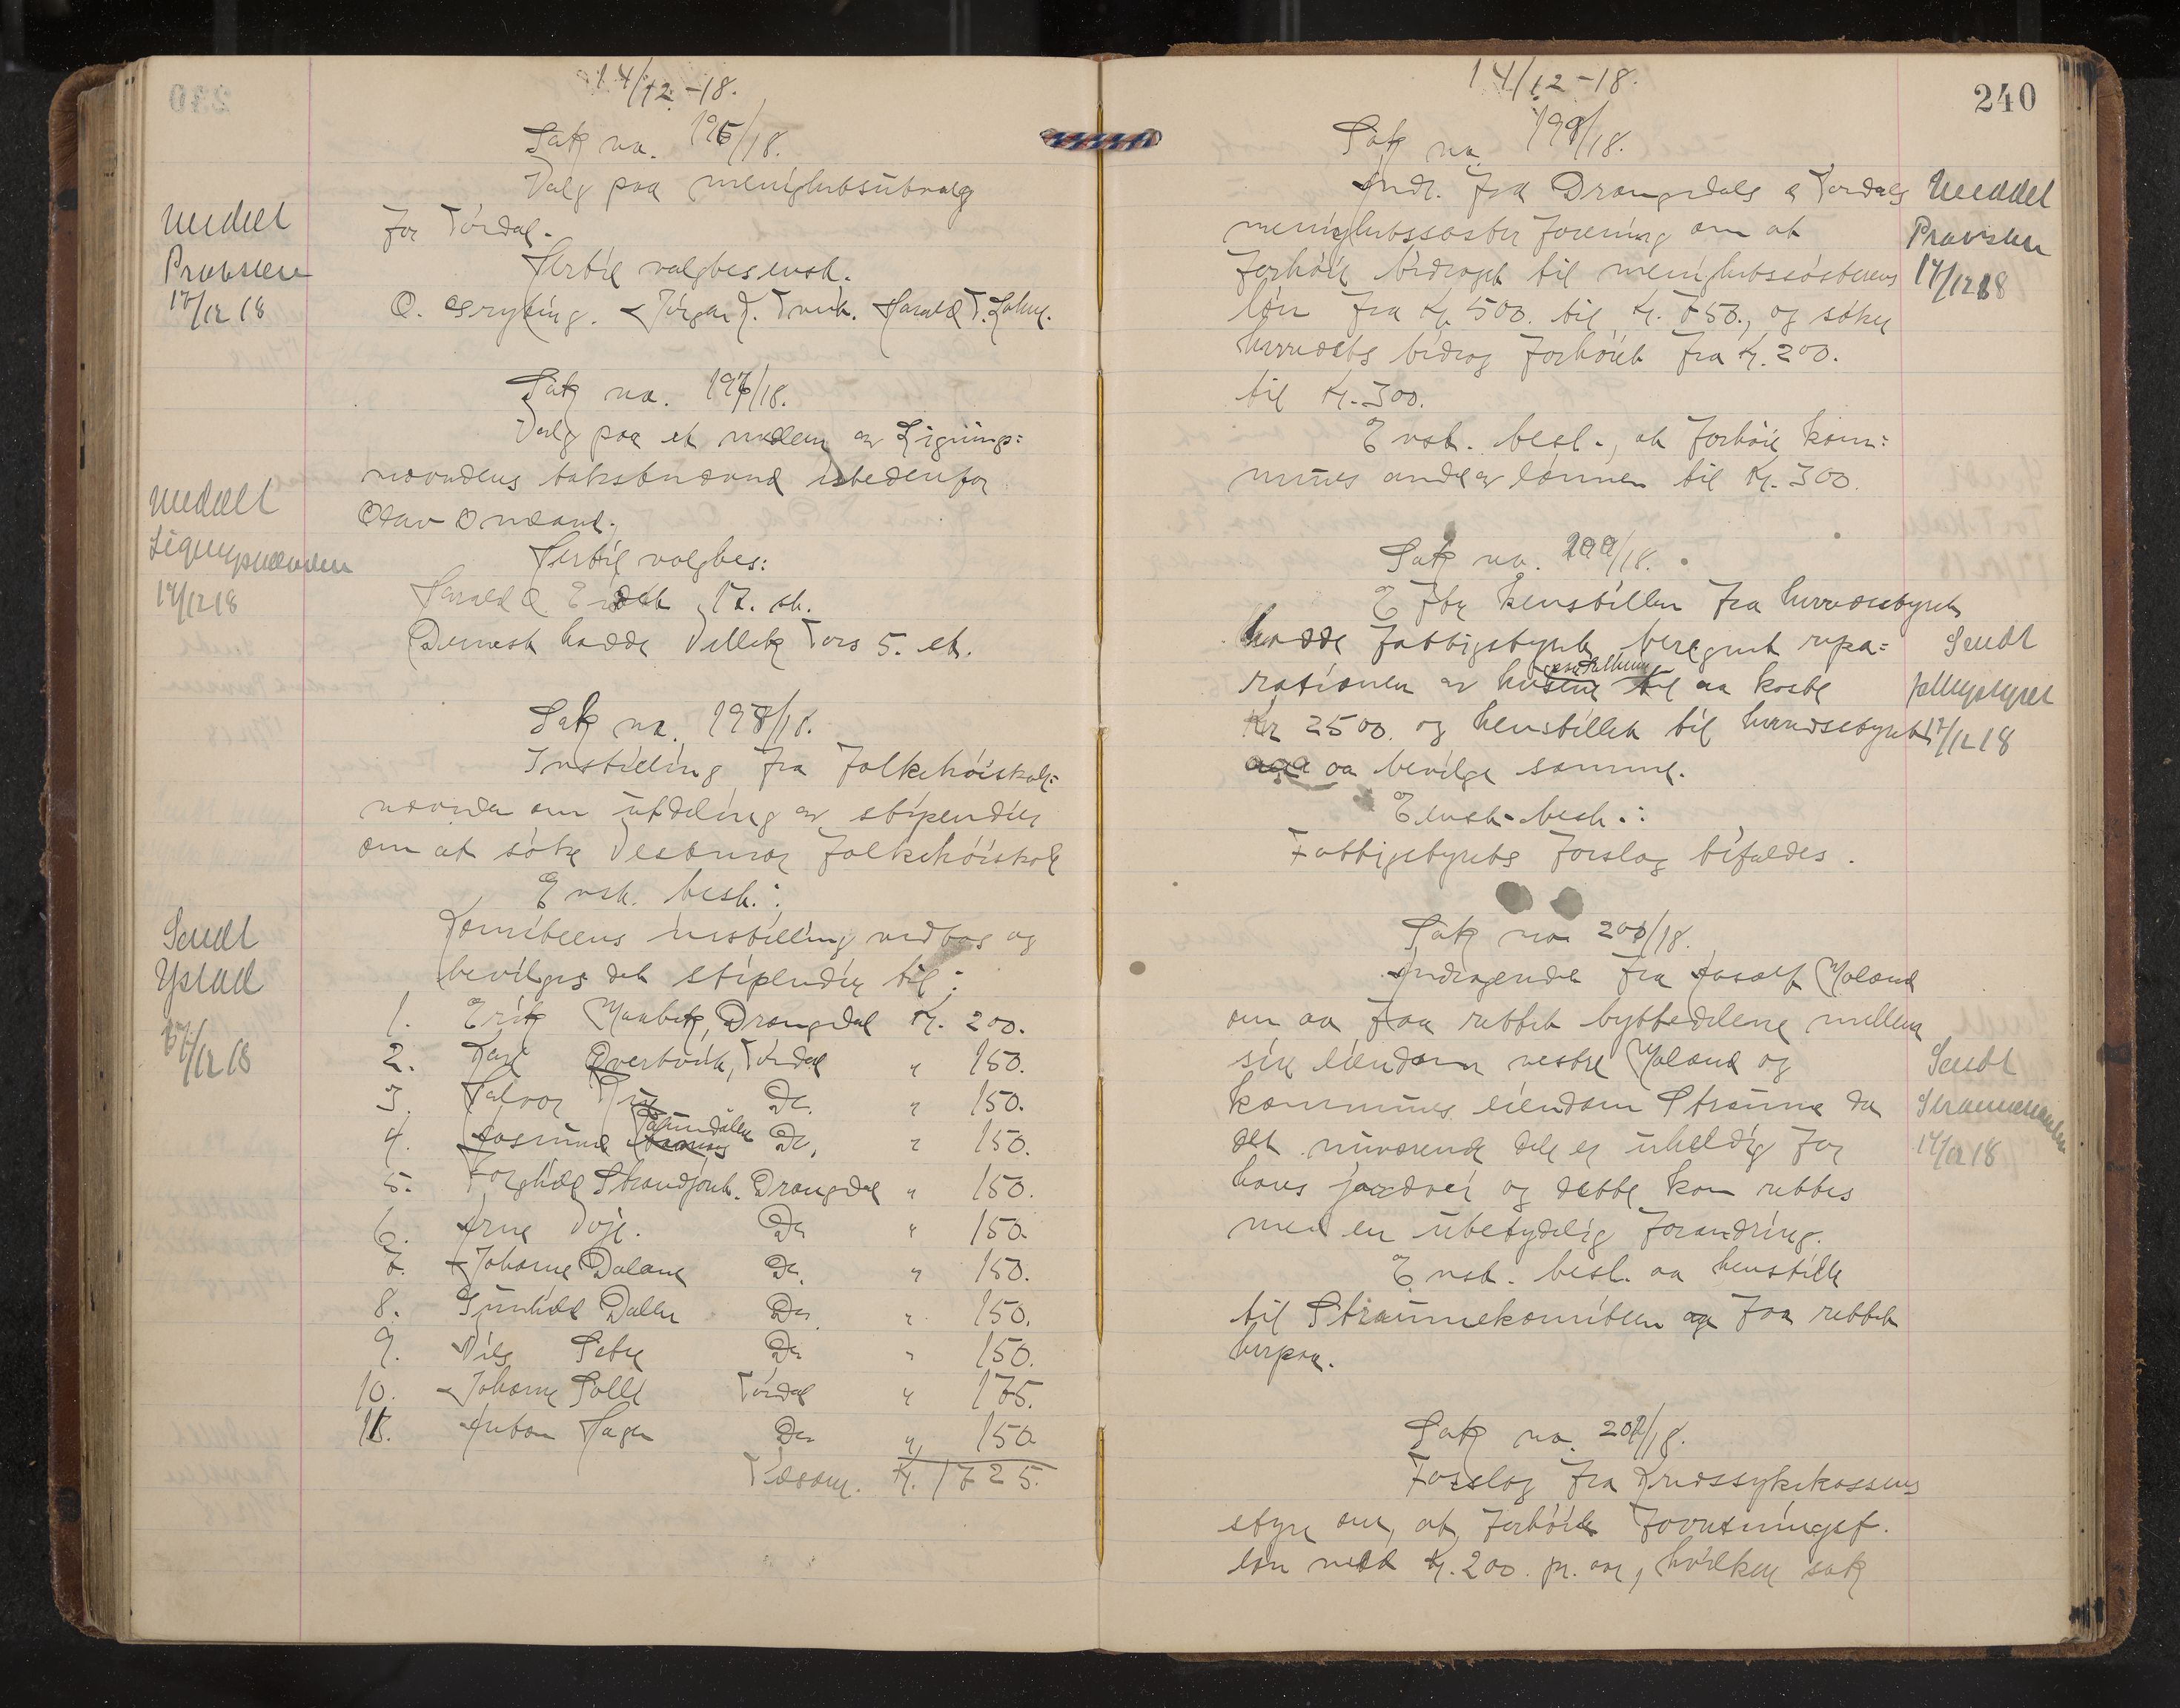 14/12-18.
Sak no. 196/18.
Valg paa menighetsutvalg
for Tørdal.
Hertil valgtes enst.
O. Gryting. Jørgen J. Tveit. Harald T.
Meddelt
Provsten
17/12 18
Sak no. 197/18.
Valg paa et medlem av Lignings=
nævndens takstnævnd istedenfor
Olav
Hertil valgtes:
Harald O. 17. st.
Dernest hadde Vellek Tors 5. st.
Meddelt
Ligningsnævnden
17/12 18
Sak no. 198/18.
Instilling fra Folkehøiskole=
nævnden om utdeling av stipendier
om at søke Vestmar folkehøiskole
Enst. besl.:
Komiteens instilling vedtas og
bevilges det stipendier til:
Sendt
Ystad
17/12 18
1. Erik Drangedal Kr. 200.
2. Kari Øverbøik, Tørdal " 150.
3. Halvor Do. " 150.
4. Aasmund Do. " 150.
5. Torghild Drangedal " 150.
6. Arne Voje. Do " 150.
7. Johanne Dalane Do. " 150.
8. Gunhild Dalen Do. " 150.
9. Nils Sætre Do " 150.
10. Johanne Solli Tørdal " 175.
11. Anton Hagen Do " 150
Tilsam. Kr. 1725.
14/12-18.
240
Sak no. 199/18.
Andr. fra Drangedals & Tørdals
menighetssøster forening om at
forhøie bidraget til menighetssøsterens
løn fra Kr. 500. til Kr. 750., og søkes
herredets bidrag forhøiet fra Kr. 200.
til Kr. 300.
Enst. besl., at forhøie kom=
munes andel av lønnen til Kr. 300.
Meddelt
Provsten
17/12 18
Sak no. 200/18.
Efter henstillen fra herredsstyret
hadde fattigstyret beregnet repa=
rationen av husene til aa koste
Kr 2500. og henstillet til herredsstyret
aa bevilge samme.
Enst. besl.:
Fattigstyrets forslag bifaldes.
Sendt
fattigstyret
17/12 18
Sak no 201/18.
Andragende fra Moland
om aa faa rettet byttedelene mellem
sin eiendom vestre Moland og
kommunes eiendom Straume da
det nuværende dele er uheldig for
hans jordvei og dette kan rettes
med en ubetydelig forandring.
Enst. besl. aa henstille
til Straumekomiteen aa faa rettet
herpaa.
Sendt
Straumekomiteen
17/12 18
Sak no. 202/18.
Forslag fra Kredssykekassens
styre om, at forhøie forretningsf.
løn med Kr. 200. pr. aar, hvilken sak